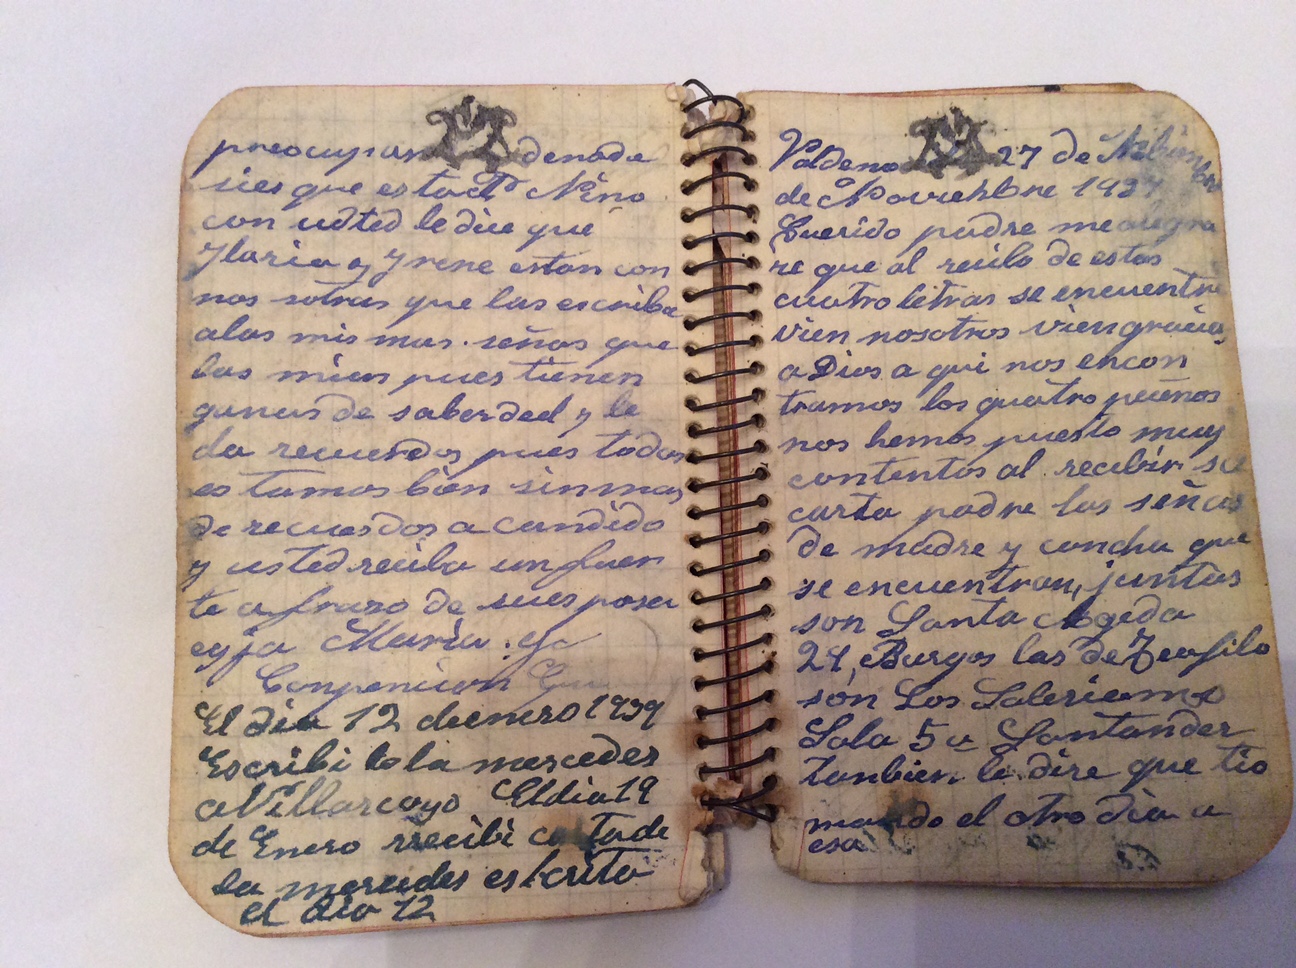 preocupar de nada
sies que esta Nino
con usted le dice que
Ylaria y Yrene estan con
nos sotras que las escriba
alas mis mas. señas que
las mias pues tienen
ganas de saber ded y le
da recuerdos pues todas
estamos bien sin mas
de recuerdos a candido
y usted reciba un fuer
te afrazo de su esposa
eyja Maria
Conpenicion
El dia 12 de enero 1939
Escribi lo la mercedes
a Villarcayo El dia 19
de Enero rrecibi carta de
la mercedes escrita
el dia 12
Valdeno 27 de
de Noviehbre 193
Querido padre me alegra
re que al recibo de estas
cuatro letras se encuentre
vien nosotros vien gracias
a Dios a qui nos encon
tramos los quatro
nos hemos puesto muy
contentos al recibir su
carta padre las señas
de madre y concha que
se encuentran, juntas
son Santa Ageda
24, Burgos las de Teofilo
són Los Saleriamos
Sala 5a Santander
tanbien le dire que tio
mando el otro dia a
esa